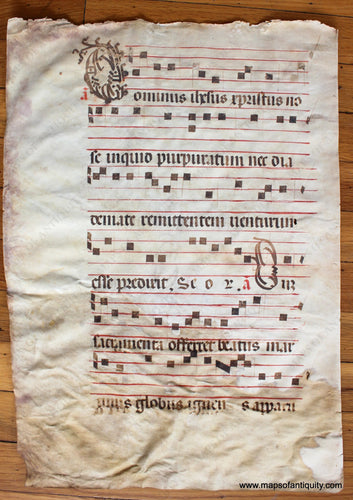 a Dominus ihesus xpristus no
se inquid purpuratum nec dia
demate remittentem uenturum
esse predixit. a Dum
sacramenta offerret beatus mar
tinus globus igneu s apparu
www.mapsofantiquity.com